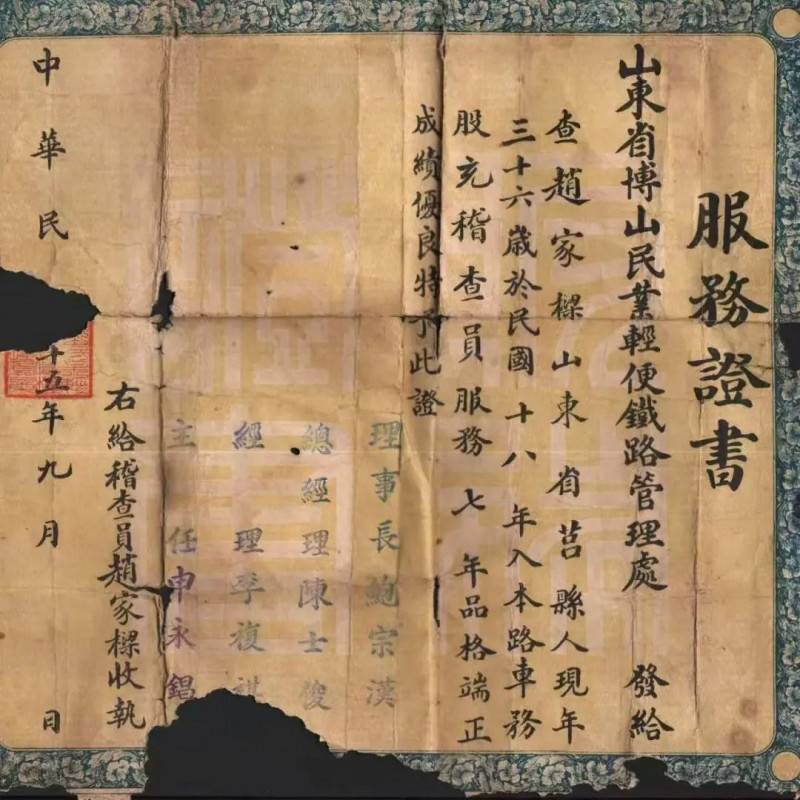 服務證書
山東省博山民業輕便鐵路管理處 發給
查趙家樑山東省莒縣人現年
三十六歲於民國十八年入本路車務
股充稽查員服務七年品格端正
成績優良特予此證
理事長鮑宗漢
總經理陳士俊
經理季複祺
主任申永錩
右給稽查員趙家樑收執
中華民 十五年九月 日